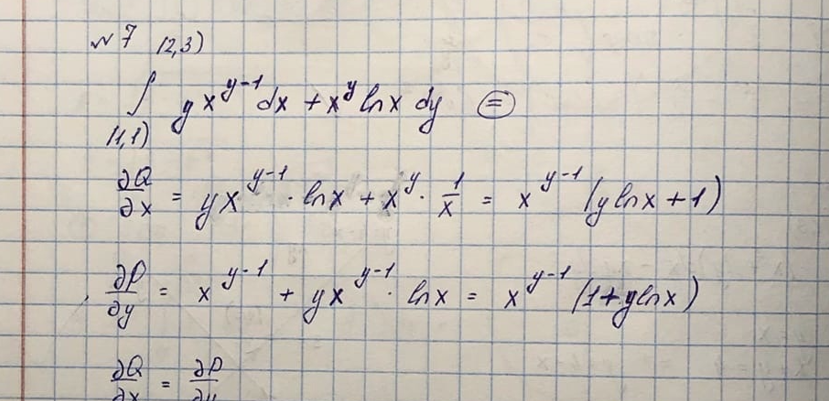 № 7 (2,3)
∫ yx^{y-1} dx + x^y ln x dy =
(1,1)
∂Q/∂x = yx^{y-1} · ln x + x^y · 1/x = x^{y-1} (y ln x + 1)
∂P/∂y = x^{y-1} + yx^{y-1} · ln x = x^{y-1} (1 + y ln x)
∂Q/∂x = ∂P/∂y